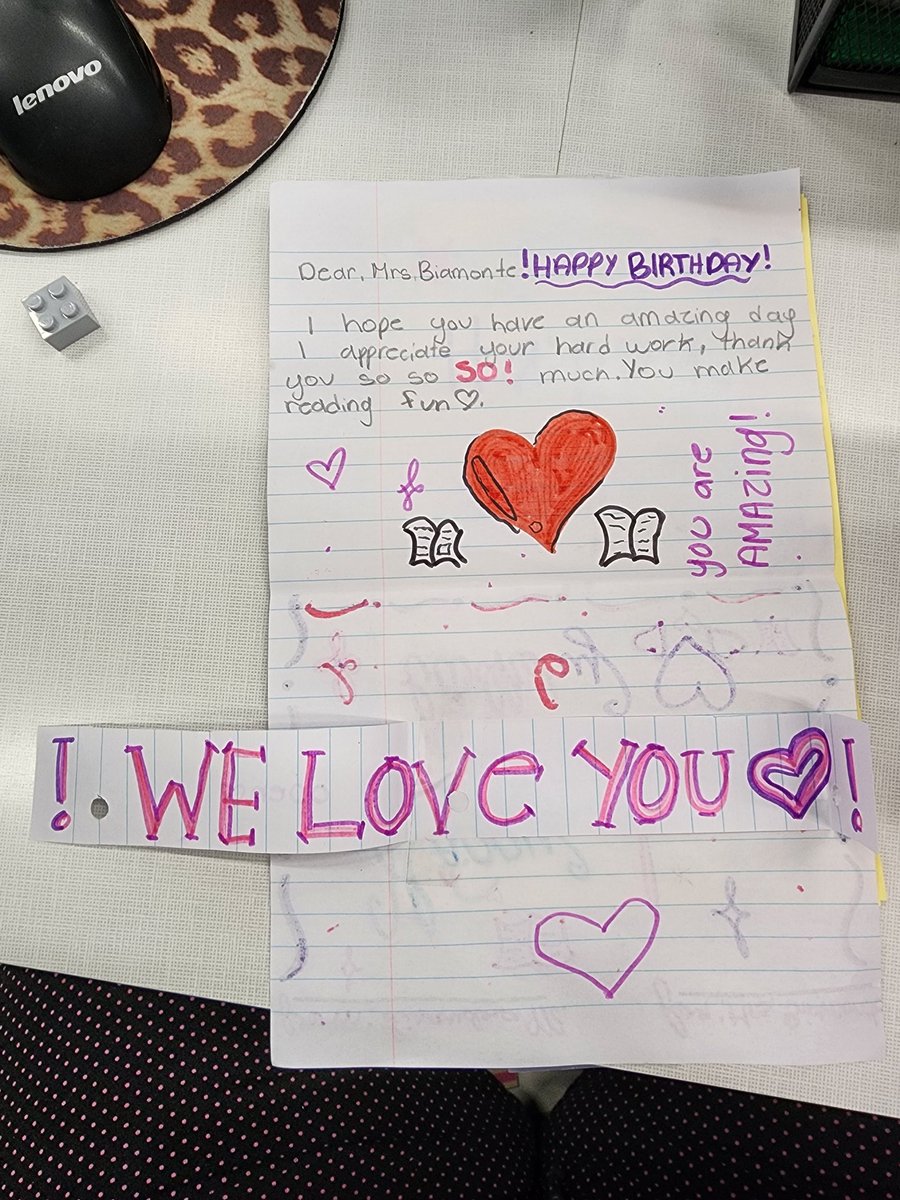 lenovo
Dear, Mrs. Biamonte !HAPPY BIRTHDAY!
I hope you have an amazing day
I appreciate your hard work, thank
you so so SO! much. You make
reading fun♡.
you are
AMAzing!
! WE LOVE YOU♡!